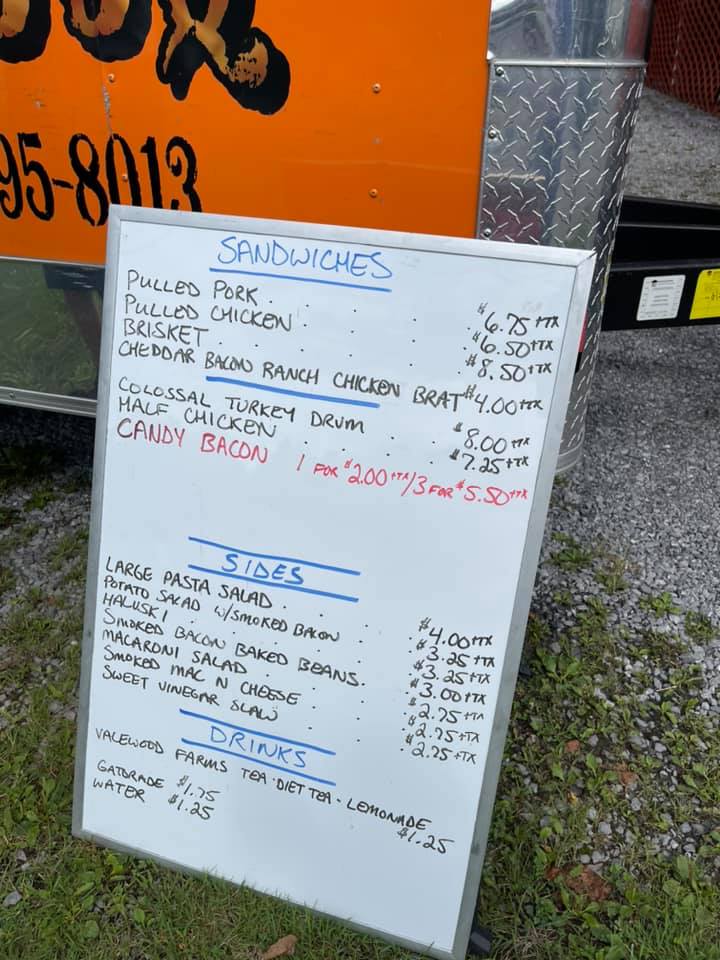 95-8013
SANDWICHES
PULLED PORK . . . . $6.75+TX
PULLED CHICKEN . . . . $6.50+TX
BRISKET . . . . $8.50+TX
CHEDDAR BACON RANCH CHICKEN BRAT $4.00+TX
COLOSSAL TURKEY DRUM . . . $8.00+TX
HALF CHICKEN . . . . $7.25+TX
CANDY BACON 1 FOR $2.00+TX/3 FOR $5.50+TX
SIDES
LARGE PASTA SALAD . . . . $4.00+TX
POTATO SALAD W/SMOKED BACON . . $3.25+TX
HALUSKI . . . . $3.25+TX
SMOKED BACON BAKED BEANS. . $3.00+TX
MACARONI SALAD . . . . $2.75+TX
SMOKED MAC N CHEESE . . . $2.75+TX
SWEET VINEGAR SLAW . . . . $2.75+TX
DRINKS
VALEWOOD FARMS TEA · DIET TEA - LEMONADE $1.25
GATORADE $1.75
WATER $1.25